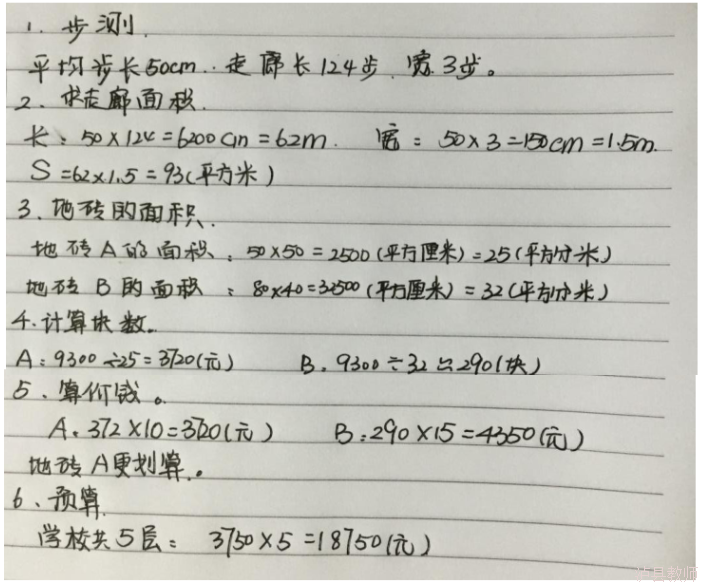 1. 步测.
平均步长50cm. 走廊长124步, 宽3步。
2. 求走廊面积.
长: 50×124=6200cm=62m. 宽: 50×3=150cm=1.5m.
S=62×1.5=93(平方米)
3. 地砖的面积.
地砖A的面积: 50×50=2500(平方厘米)=25(平方分米)
地砖B的面积: 80×40=32500(平方厘米)=32(平方分米)
4. 计算块数.
A: 9300÷25=3720(元) B. 9300÷32≈290(块)
5. 算价钱。
A. 372×10=3720(元) B:290×15=4350(元)
地砖A更划算.。
6、预算
学校共5层: 3750×5=18750(元)